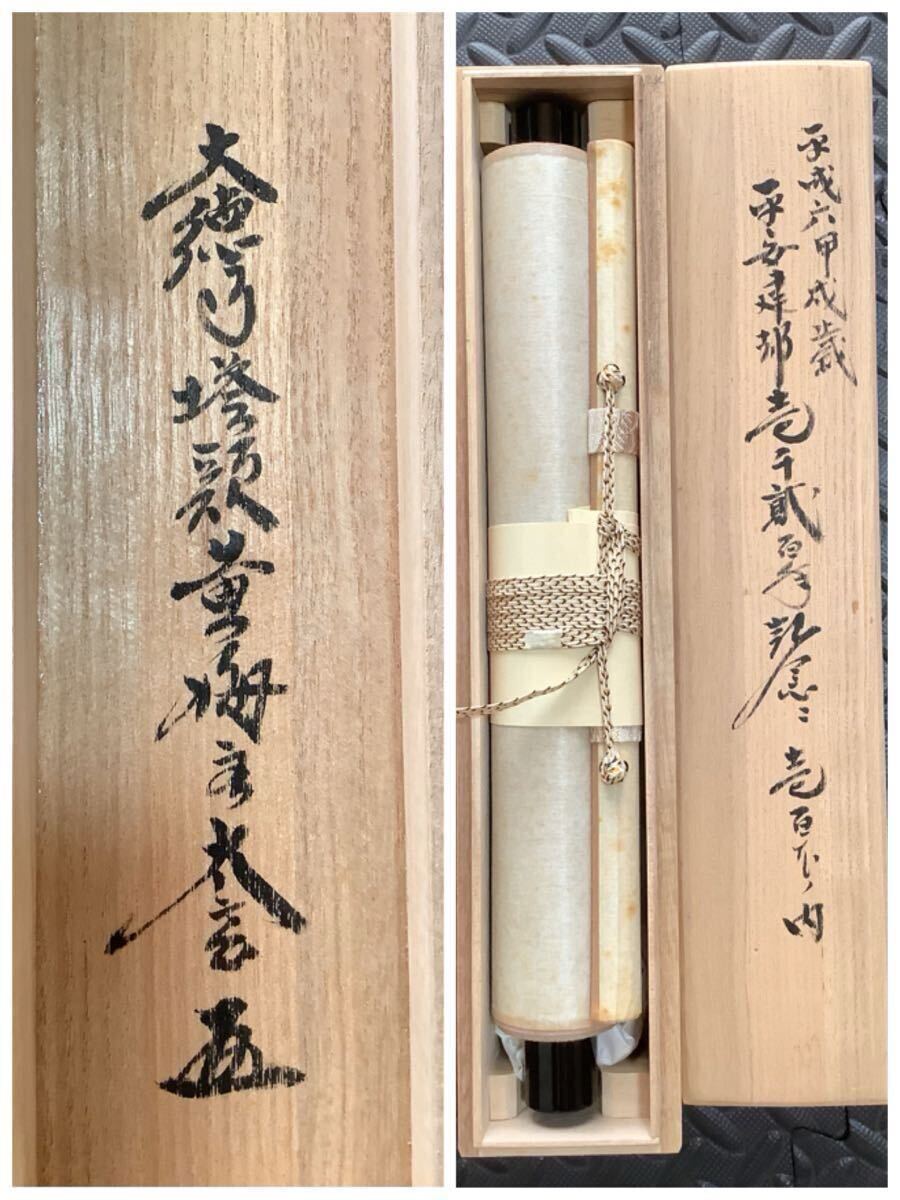 大徳寺塔頭黄梅太玄
平成六甲戌歳
平安建都壱千貳百年記念ニ
壱百本ノ内